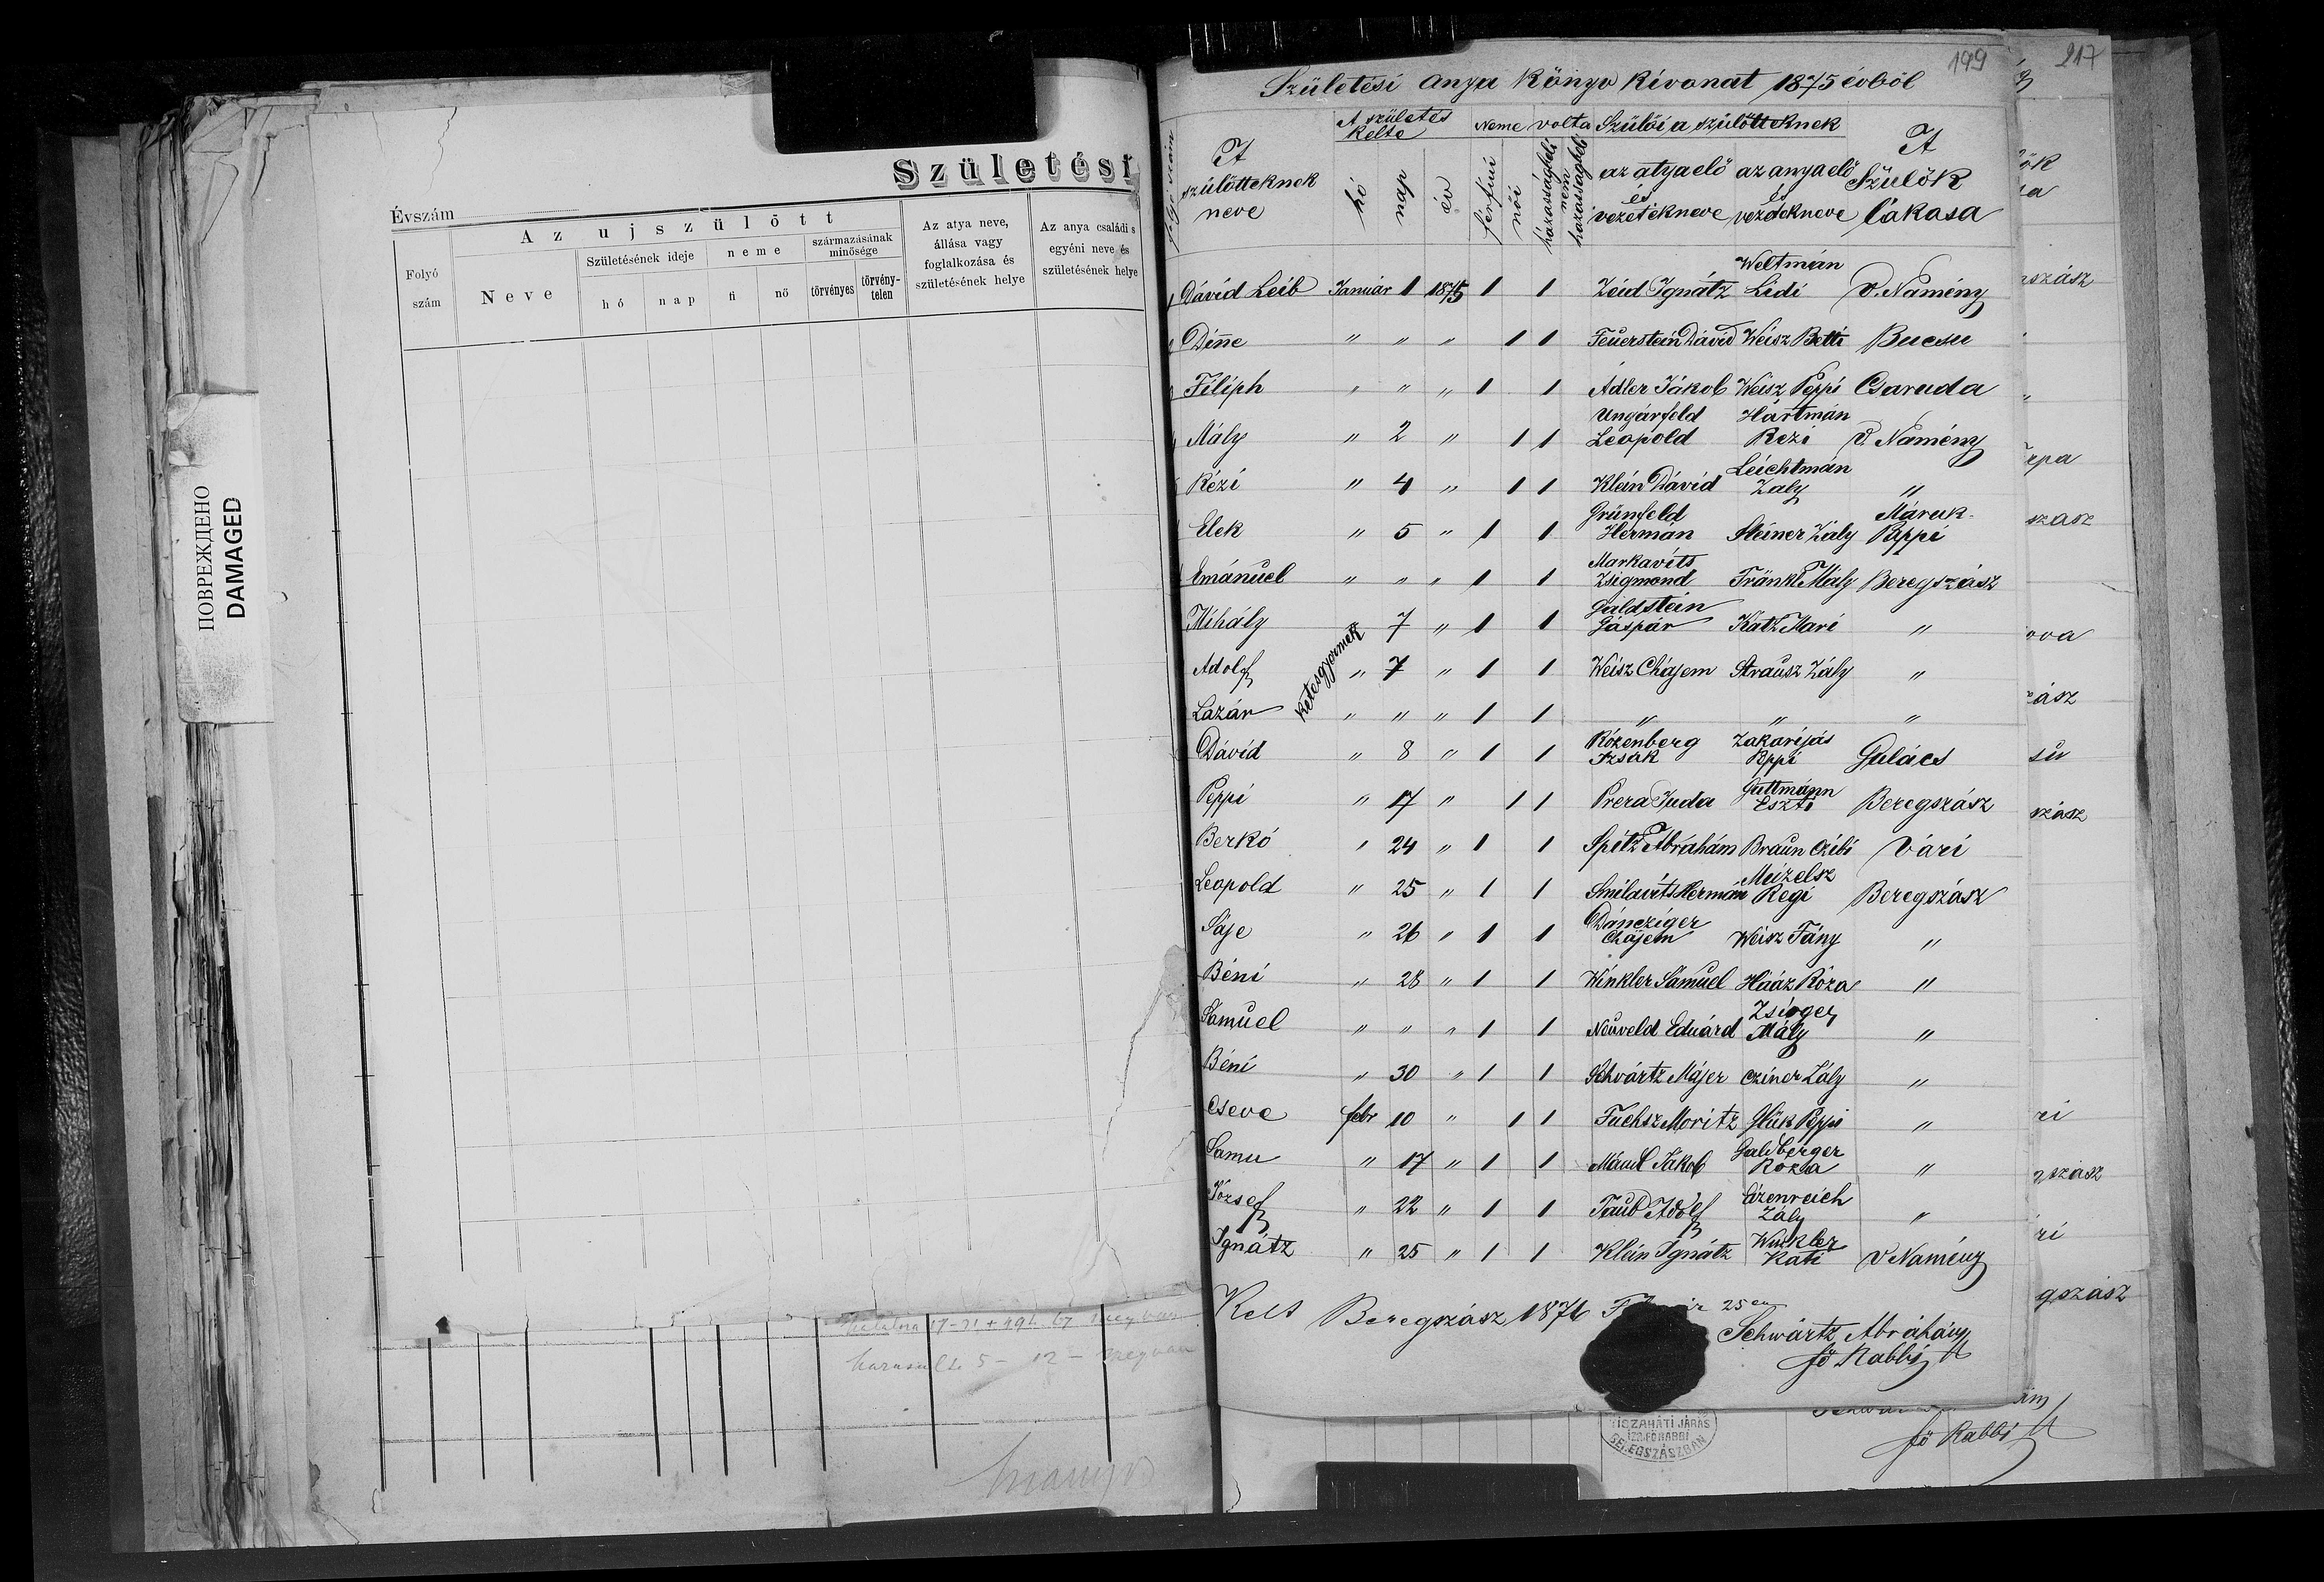 ПОВРЕЖДЕНО
DAMAGED
Születési
Évszám
Folyó szám
Az ujszülött
Neve
Születésének ideje
hó
nap
neme
fi
nő
származásának minősége
törvényes
törvény-telen
Az atya neve, állása vagy foglalkozása és születésének helye
Az anya családi s egyéni neve és születésének helye
199
217
Születési anya Könyv Kivonat 1875 évböl
folyó szám
A szülötteknek neve
A születés Kelte
hó
nap
év
Neme
férfiui
női
volta
házasságbeli
nem házasságbeli
Szülöi a szülötteknek
az atya elő és vezetékneve
az anya elő és vezetékneve
A Szülök lakasa
Dávid Leib Január 1 1875 1 1 Zeid Ignátz Weltmán Lidi V. Namény
Dine " " " 1 1 Feuerstein Dávid Weisz Betti Bucsu
Filiph " " " 1 1 Adler Jákob Weisz Peppi Csaruda
Mály " 2 " 1 1 Ungárfeld Leopold Hártmán Rezi V. Namény
Rézi " 4 " 1 1 Klein Dávid Leichtmán Zaly "
Elek " 5 " 1 1 Grünfeld Hermán Steiner Zály Máruk Pappi
Emánuel " " " 1 1 Markavits Zsigmond Fränkl Mály Beregszász
Mihály " 7 " 1 1 Galdstein Gáspár Katz Mari "
Adolf Ketesgyermek " 7 " 1 1 Weisz Chájem Strausz Zály "
Lázár " " " 1 1 " " "
Dávid " 8 " 1 1 Rózenberg Izsák Zakarijás Peppi Gulács
Peppi " 17 " 1 1 Prera Juda Guttmánn Eszti Beregszász
Berkó " 24 " 1 1 Spitz Abrahám Braun Czili Vári
Leopold " 25 " 1 1 Smilavits Hermán Meizelsz Regi Beregszász
Sáje " 26 " 1 1 Dáncziger Chájem Weisz Fány "
Béni " 28 " 1 1 Winkler Sámuel Hááz Róza "
Samuel " " " 1 1 Neuveld Eduárd Zsinger Mály "
Béni " 30 " 1 1 Schvártz Májer Cziner Zály "
Cseve febr 10 " 1 1 Fuchsz Moritz Glük Peppi "
Samu " 17 " 1 1 Mául Jákob Galdberger Roza "
József " 22 " 1 1 Taub Adolf Eizenreich Zály "
Ignátz " 25 " 1 1 Klein Ignátz Winkler Kati V Namény
Kelt Beregszász 1876 25én
Schwártz Abráhám
fő Rabbi
TISZAHÁTI JÁRÁS
IZR. FŐRABBI
BEREGSZÁSZBAN
fő Rabbi